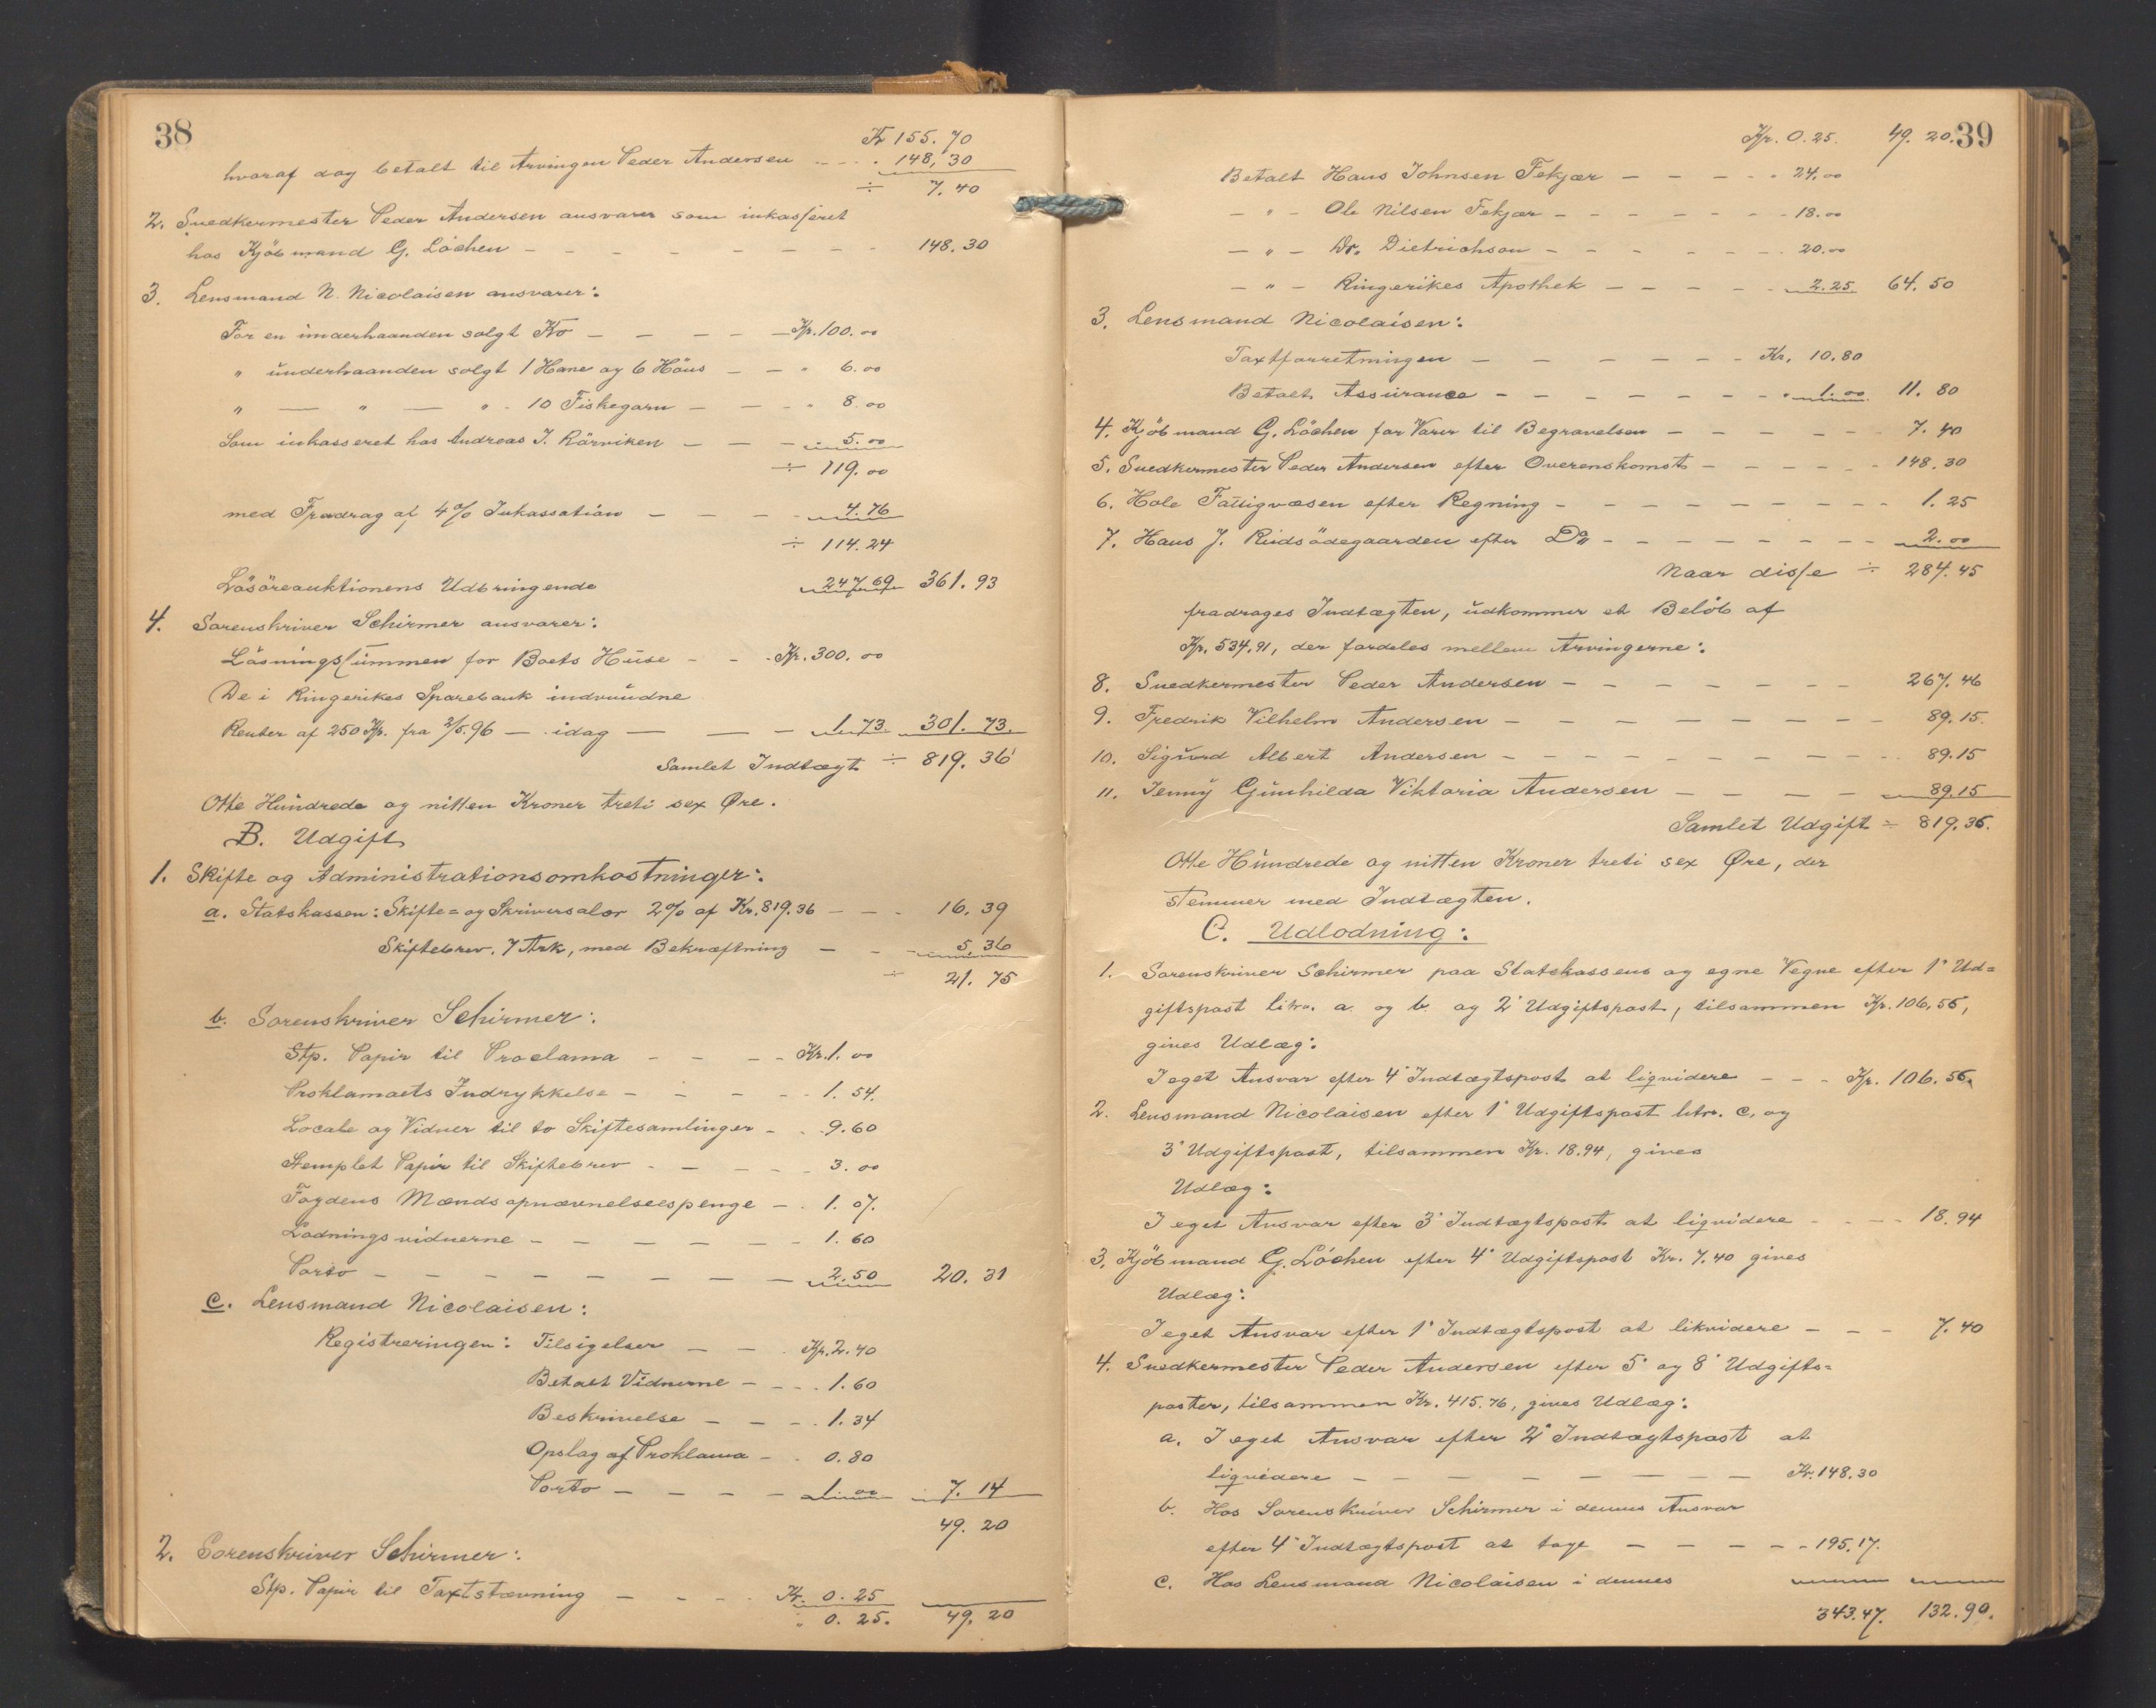 38
Kr 155.70
hvoraf dog betalt til Arvingen Peder Andersen - - - . 148,30
÷ 7.40
2. Snedkermester Peder Andersen ansvarer som inkasseret
hos Kjöbmand G. Löchen - - - - - - - 148.30
3. Lensmand N. Nicolaisen ansvarer:
For en underhaanden solgt Ko - - - - Kr. 100.00
" underhaanden solgt 1 Hane og 6 Höns - - " 6.00
" — " — " - 10 Fiskegarn - - - " 8.00
Som inkasseret hos Andreas J. Rörviken - - - 5.00
÷ 119.00
med Fradrag af 4% Inkassation - - - - 4.76
÷ 114.24
Lösöreauktionens Udbringende 247.69 361.93
4. Sorenskriver Schirmer ansvarer:
Läsningssummen for Boets Huse - - Kr. 300.00
De i Ringerikes Sparebank indvundne
Renter af 250 Kr. fra 2/5.96 - idag - - - 1.73. 301.73.
Samlet Indtægt ÷ 819.36
Otte Hundrede og nitten Kroner treti sex Øre.
B. Udgift
1. Skifte og Administrationsomkostninger:
a. Statskassen: Skifte= og Skriversalær 2% af Kr. 819.36 - - - 16.39
Skiftebrev. 7 Ark, med Bekræftning - - 5,36
÷ 21.75
b. Sorenskriver Schirmer:
Stp. Papir til Proclama - - - - Kr. 1.00
Proklamaets Indrykkelse - - - - - 1.54.
Locale og Vidner til to Skiftesamlinger - - 9.60
Stemplet Papir til Skiftebrev - - - - - 3.00
Fogdens Mændsopnævnelsespenge - - 1.07.
Lodningsvidnerne - - - - - - - 1.60
Porto - - - - - - - - 2.50 20.31
c. Lensmand Nicolaisen:
Registreringen: Tilsigelser - - - Kr. 2.40
Betalt Vidnerne - - - - 1.60
Beskrivelse - - - - 1.34
Opslag af Proklama - - 0.80
Porto - - - - 1.00 7.14
49.20
2. Sorenskriver Schirmer:
Stp. Papir til Taxtstævning - - - - Kr. 0.25
" 0.25. 49.20
Kr. 0.25. 49.20. 39
Betalt Hans Johnsen Fekjær - - - - - 24.00
- " - Ole Nilsen Fekjær - - - - - - - 18.00
- " - Dr. Dietrichson - - - - - - - 20.00
- " - Ringerikes Apothek - - - - - 2.25. 64.50
3. Lensmand Nicolaisen:
Taxtforretningen - - - - - - - Kr. 10.80
Betalt Assurance - - - - - - - - 1.00 11.80
4. Kjöbmand G. Löchen for Varer til Begravelsen - - - - - - 7.40
5. Snedkermester Peder Andersen efter Overenskomst - - - - - - 148.30
6. Hole Fattigvæsen efter Regning - - - - - - - - - - 1.25
7. Hans J. Rudsödegaarden efter Do - - - - - - - - - 2.00
Naar disse ÷ 284.45
fradrages Indtægten, udkommer et Belöb af
Kr. 534.91, der fordeles mellem Arvingerne:
8. Snedkermester Peder Andersen - - - - - - - 267.46
9. Fredrik Vilhelm Andersen - - - - - - - - - 89.15.
10. Sigurd Albert Andersen - - - - - - - - - - 89.15
11. Jenny Gunhilda Viktoria Andersen - - - - - 89.15
Samlet Udgift ÷ 819.36.
Otte Hundrede og nitten Kroner treti sex Øre, der
stemmer med Indtægten.
C. Udlodning:
1. Sorenskriver Schirmer paa Statskassens og egne Vegne efter 1° Ud=
giftspost litr. a og b. og 2° Udgiftspost, tilsammen Kr. 106,56,
gives Udlæg:
I eget Ansvar efter 4° Indtægtspost at liqvidere - - - Kr. 106.56.
2. Lensmand Nicolaisen efter 1° Udgiftspost litr. c. og
3° Udgiftspost, tilsammen Kr. 18.94, gives
Udlæg:
I eget Ansvar efter 3° Indtægtspost at liqvidere - - - - 18.94
3. Kjöbmand G. Löchen efter 4° Udgiftspost Kr. 7.40 gives
Udlæg:
I eget Ansvar efter 1° Indtægtspost at likvidere - - - 7.40
4. Snedkermester Peder Andersen efter 5° og 8° Udgifts=
poster, tilsammen Kr. 415.76, gives Udlæg:
a. I eget Ansvar efter 2° Indtægtspost at
liqvidere - - - - - - - - Kr. 148.30
b. Hos Sorenskriver Schirmer i dennes Ansvar
efter 4° Indtægtspost at tage - - - - - 195.17.
c. Hos Lensmand Nicolaisen i dennes
343.47. 132.90.